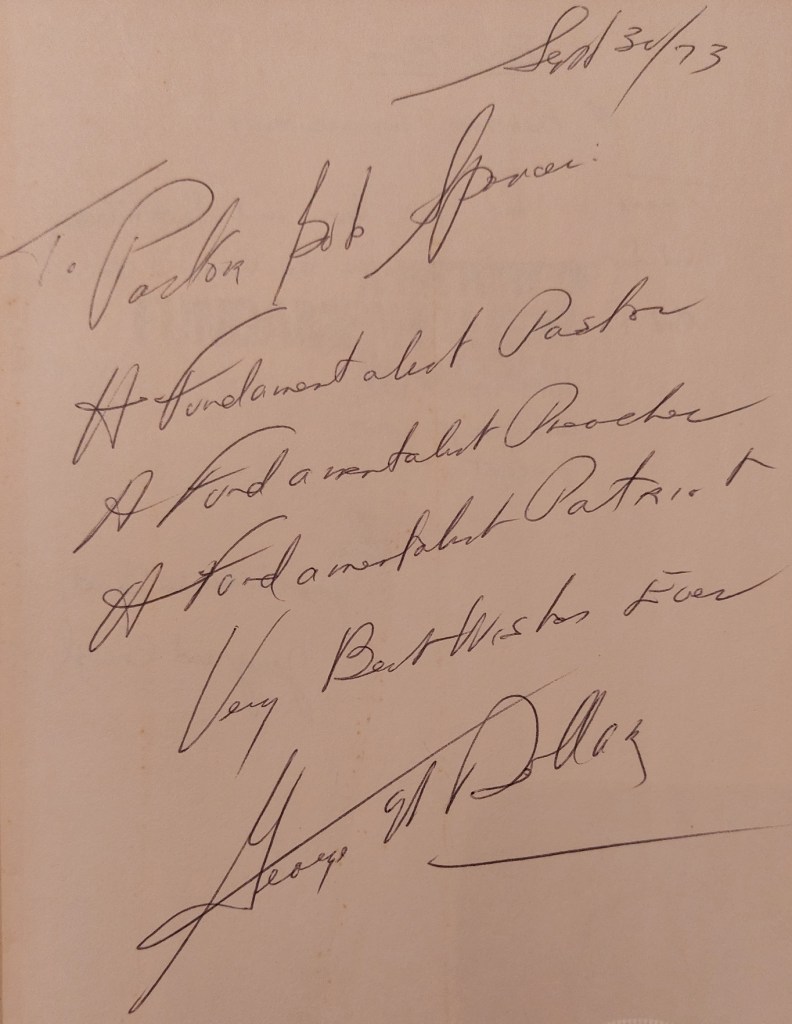 Sept 30/73
To Pastor Bob Spencer:
A Fundamentalist Pastor
A Fundamentalist Preacher
A Fundamentalist Patriot
Very Best Wishes Ever
George W Dollar